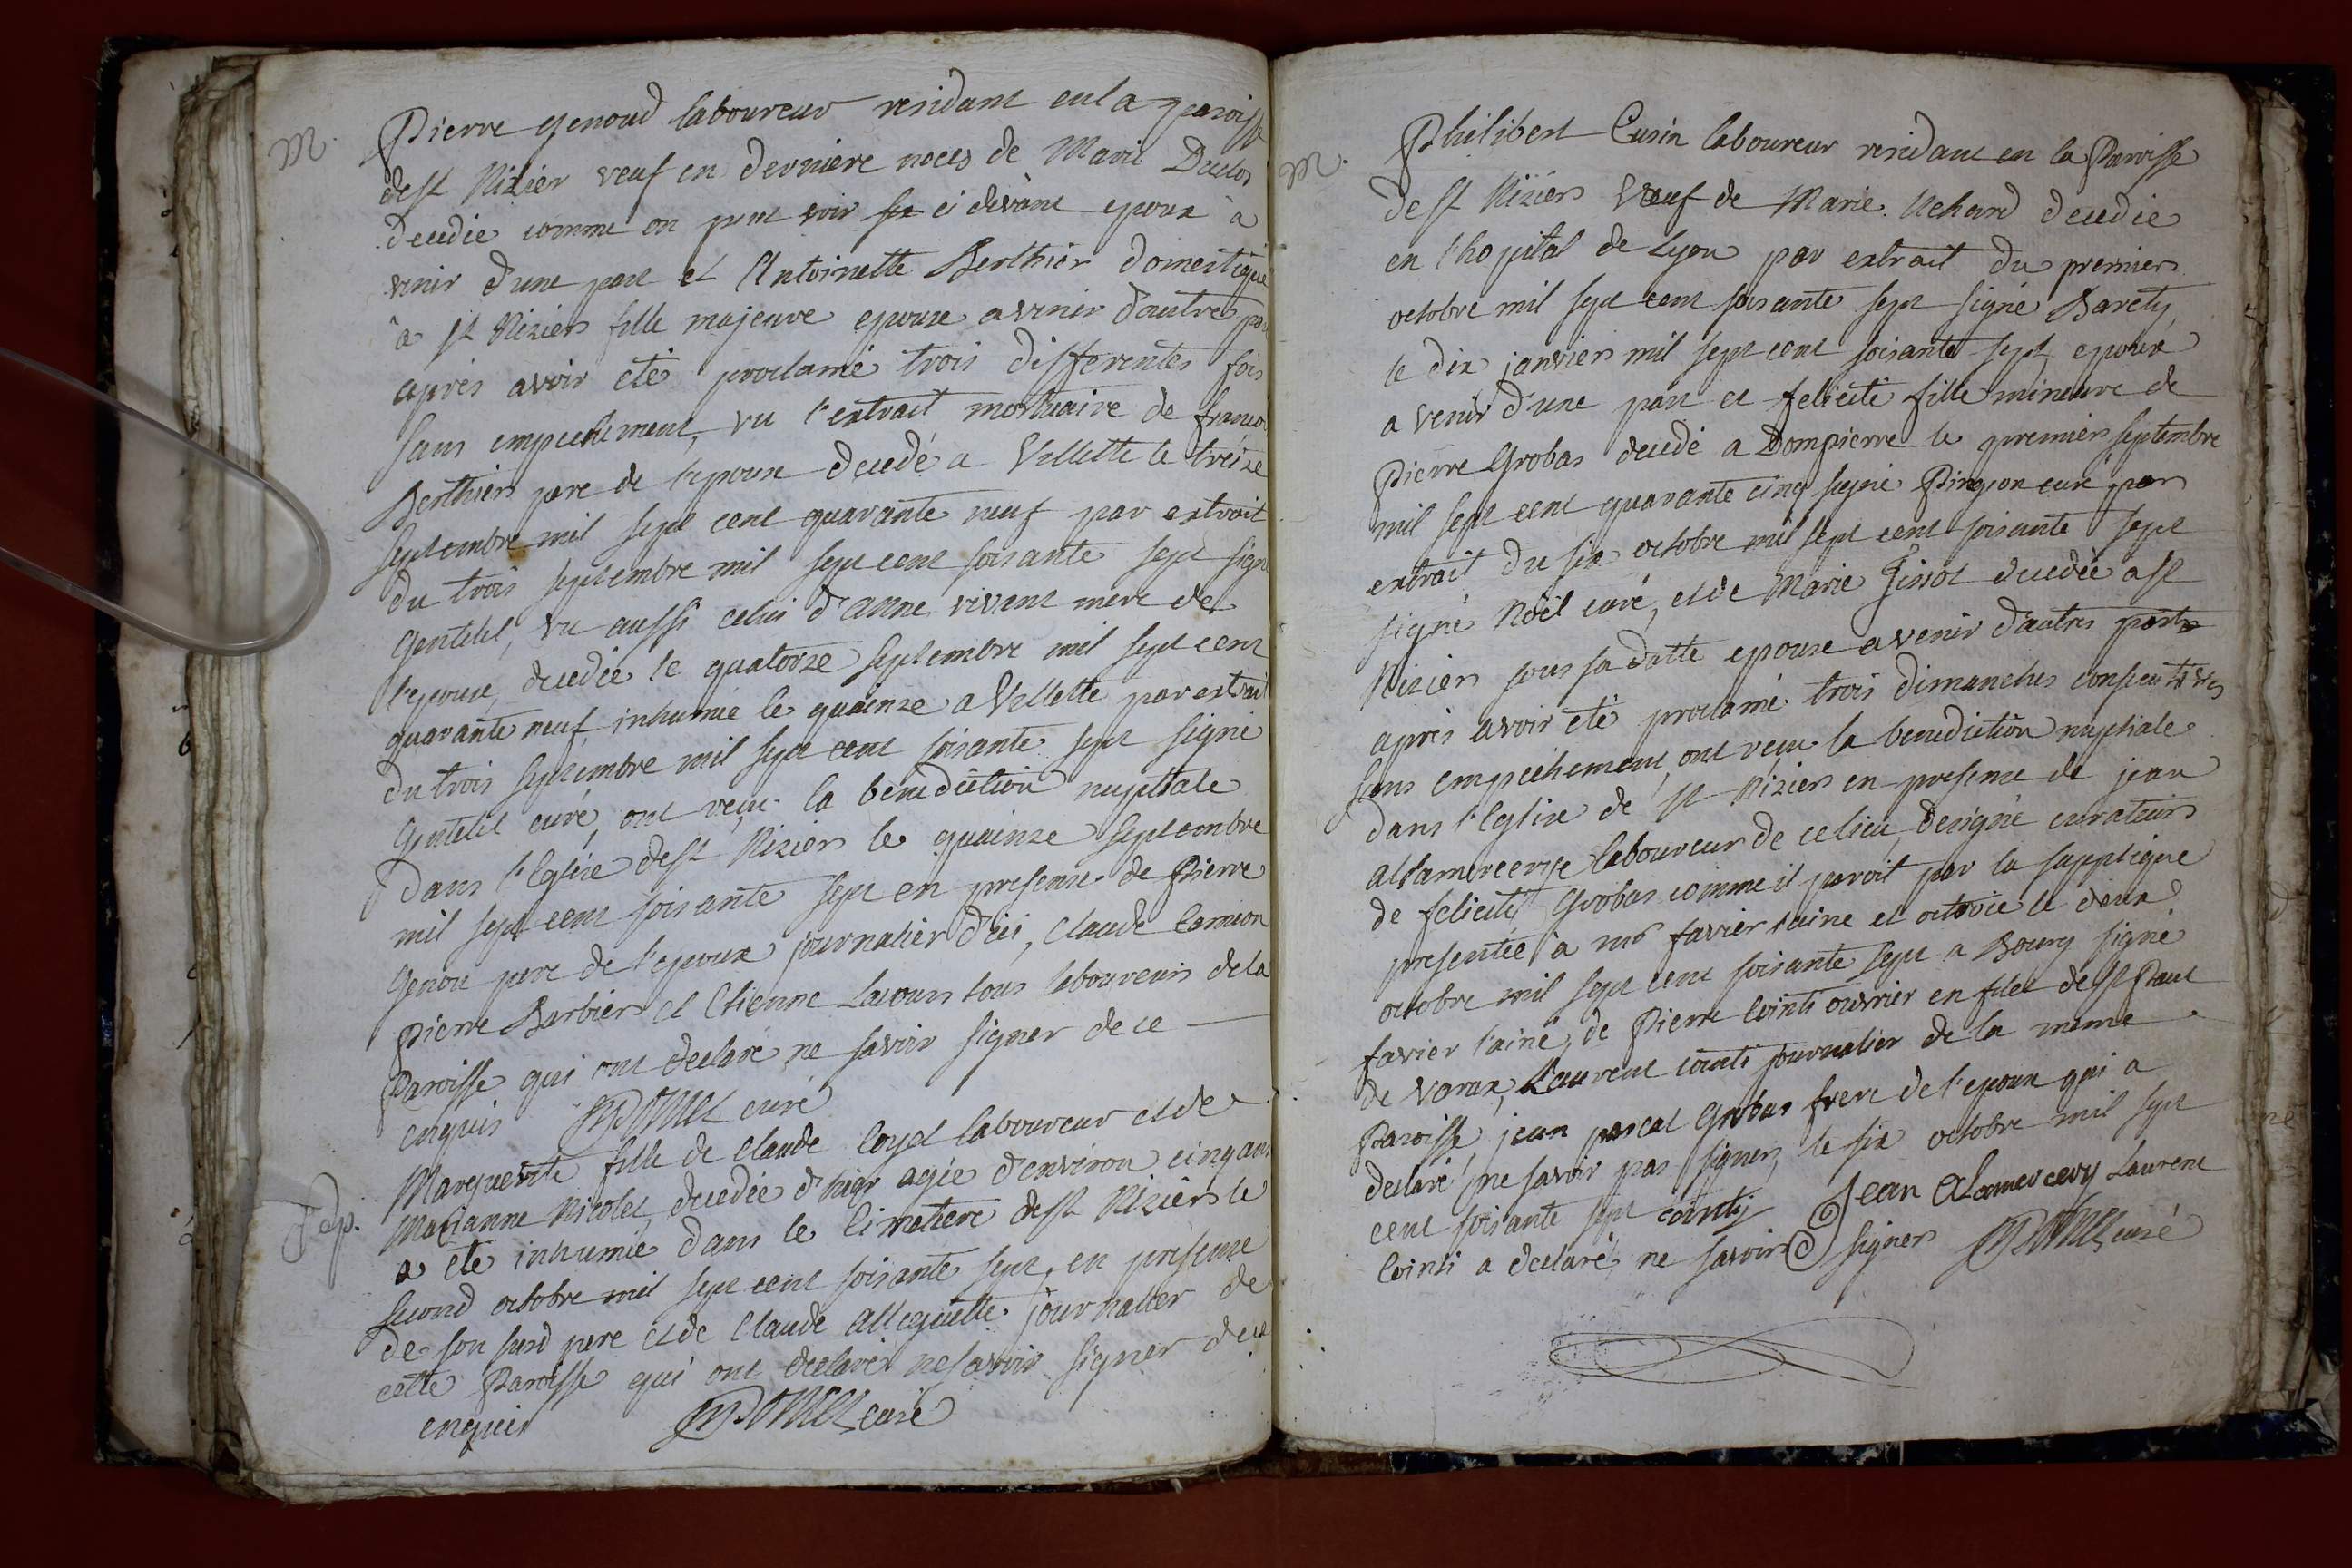 M.
Pierre genoud laboureur residant en la paroisse
de st Nizier veuf en derniere noces de Marie Duclos
decedée comme on peut voir ci devant epoux a
venir d'une part et Antoinette Berthier domestique
a st Nizier fille majeure epouse a venir d'autre par
apres avoir été proclamé trois differentes fois
sans empechement, vu l'extrait mortuaire de francoi
Berthier pere de l'epouse decedé a Villette le treize
septembre mil sept cent quarante neuf par extrait
du trois septembre mil sept cent soisante sept signé
Gentelet, vu aussi celui d'anne vivent mere de
l'epouse, decedée le quatorze septembre mil sept cent
quarante neuf inhumée le quainze a Villette par extrait
du trois septembre mil sept cent soisante sept signé
Gentelet curé, ont reçu la benediction nuptiale
Dans l'Eglise de st Nizier le quainze septembre
mil sept cent soisante sept en presence de Pierre
Genou pere de l'epoux journalier d'ici, Claude Camion
Pierre Barbier et Etienne Lavours tous laboureurs de la
Paroisse qui ont declaré ne savoir signer de ce
enquis curé
Sep.
Marguerite fille de Claude loyet laboureur et de
Marianne Nicolet, decedée d'hier agée d'environ cinq ans
a été inhumée dans le Cimetiere de st Nizier le
second octobre mil sept cent soisante sept, en presence
de son susd pere et de Claude Allegrette journalier de
cette Paroisse qui ont declarés ne savoir signer de ce
enquis curé
M.
Philibert Cusin laboureur residant en la Paroisse
de st Nizier Veuf de Marie Nehard decedée
en l'hopital de Lyon par extrait du premier
octobre mil sept cent soisante sept signé Barety
le dix janvier mil sept cent soisante sept epoux
a venir d'une part et felicité fille mineure de
Pierre Grobas decedé a Dompierre le premier septembre
mil sept cent quarante cinq signé Pingeon curé par
extrait du six octobre mil sept cent soisante sept
signé Noël curé, et de Marie Tissot decedée a st
Nizier sous sa datte epouse a venir d'autres parts
apres avoir été proclamé trois dimanches consecutives
sans empechement, ont reçu la benediction nuptiale
dans l'Eglise de st Nizier en presence de jean
Alamercerye laboureur de ce lieu, designé curateur
de felicité Grobas comme il paroit par la supplique
presentée a mr favier l'ainé et octroié le deux
octobre mil sept cent soisante sept a Bourg signé
favier l'ainé, de Pierre Cointi ouvrier en filet de st Paul
de varax, Laurent Cointi journalier de la meme
Paroisse, jean pascal Grobas frere de l'epoux qui a
declaré ne savoir pas signer, le six octobre mil sept
cent soisante sept cointy Jean Alamercery Laurent
Cointi a declaré ne savoir signer curé